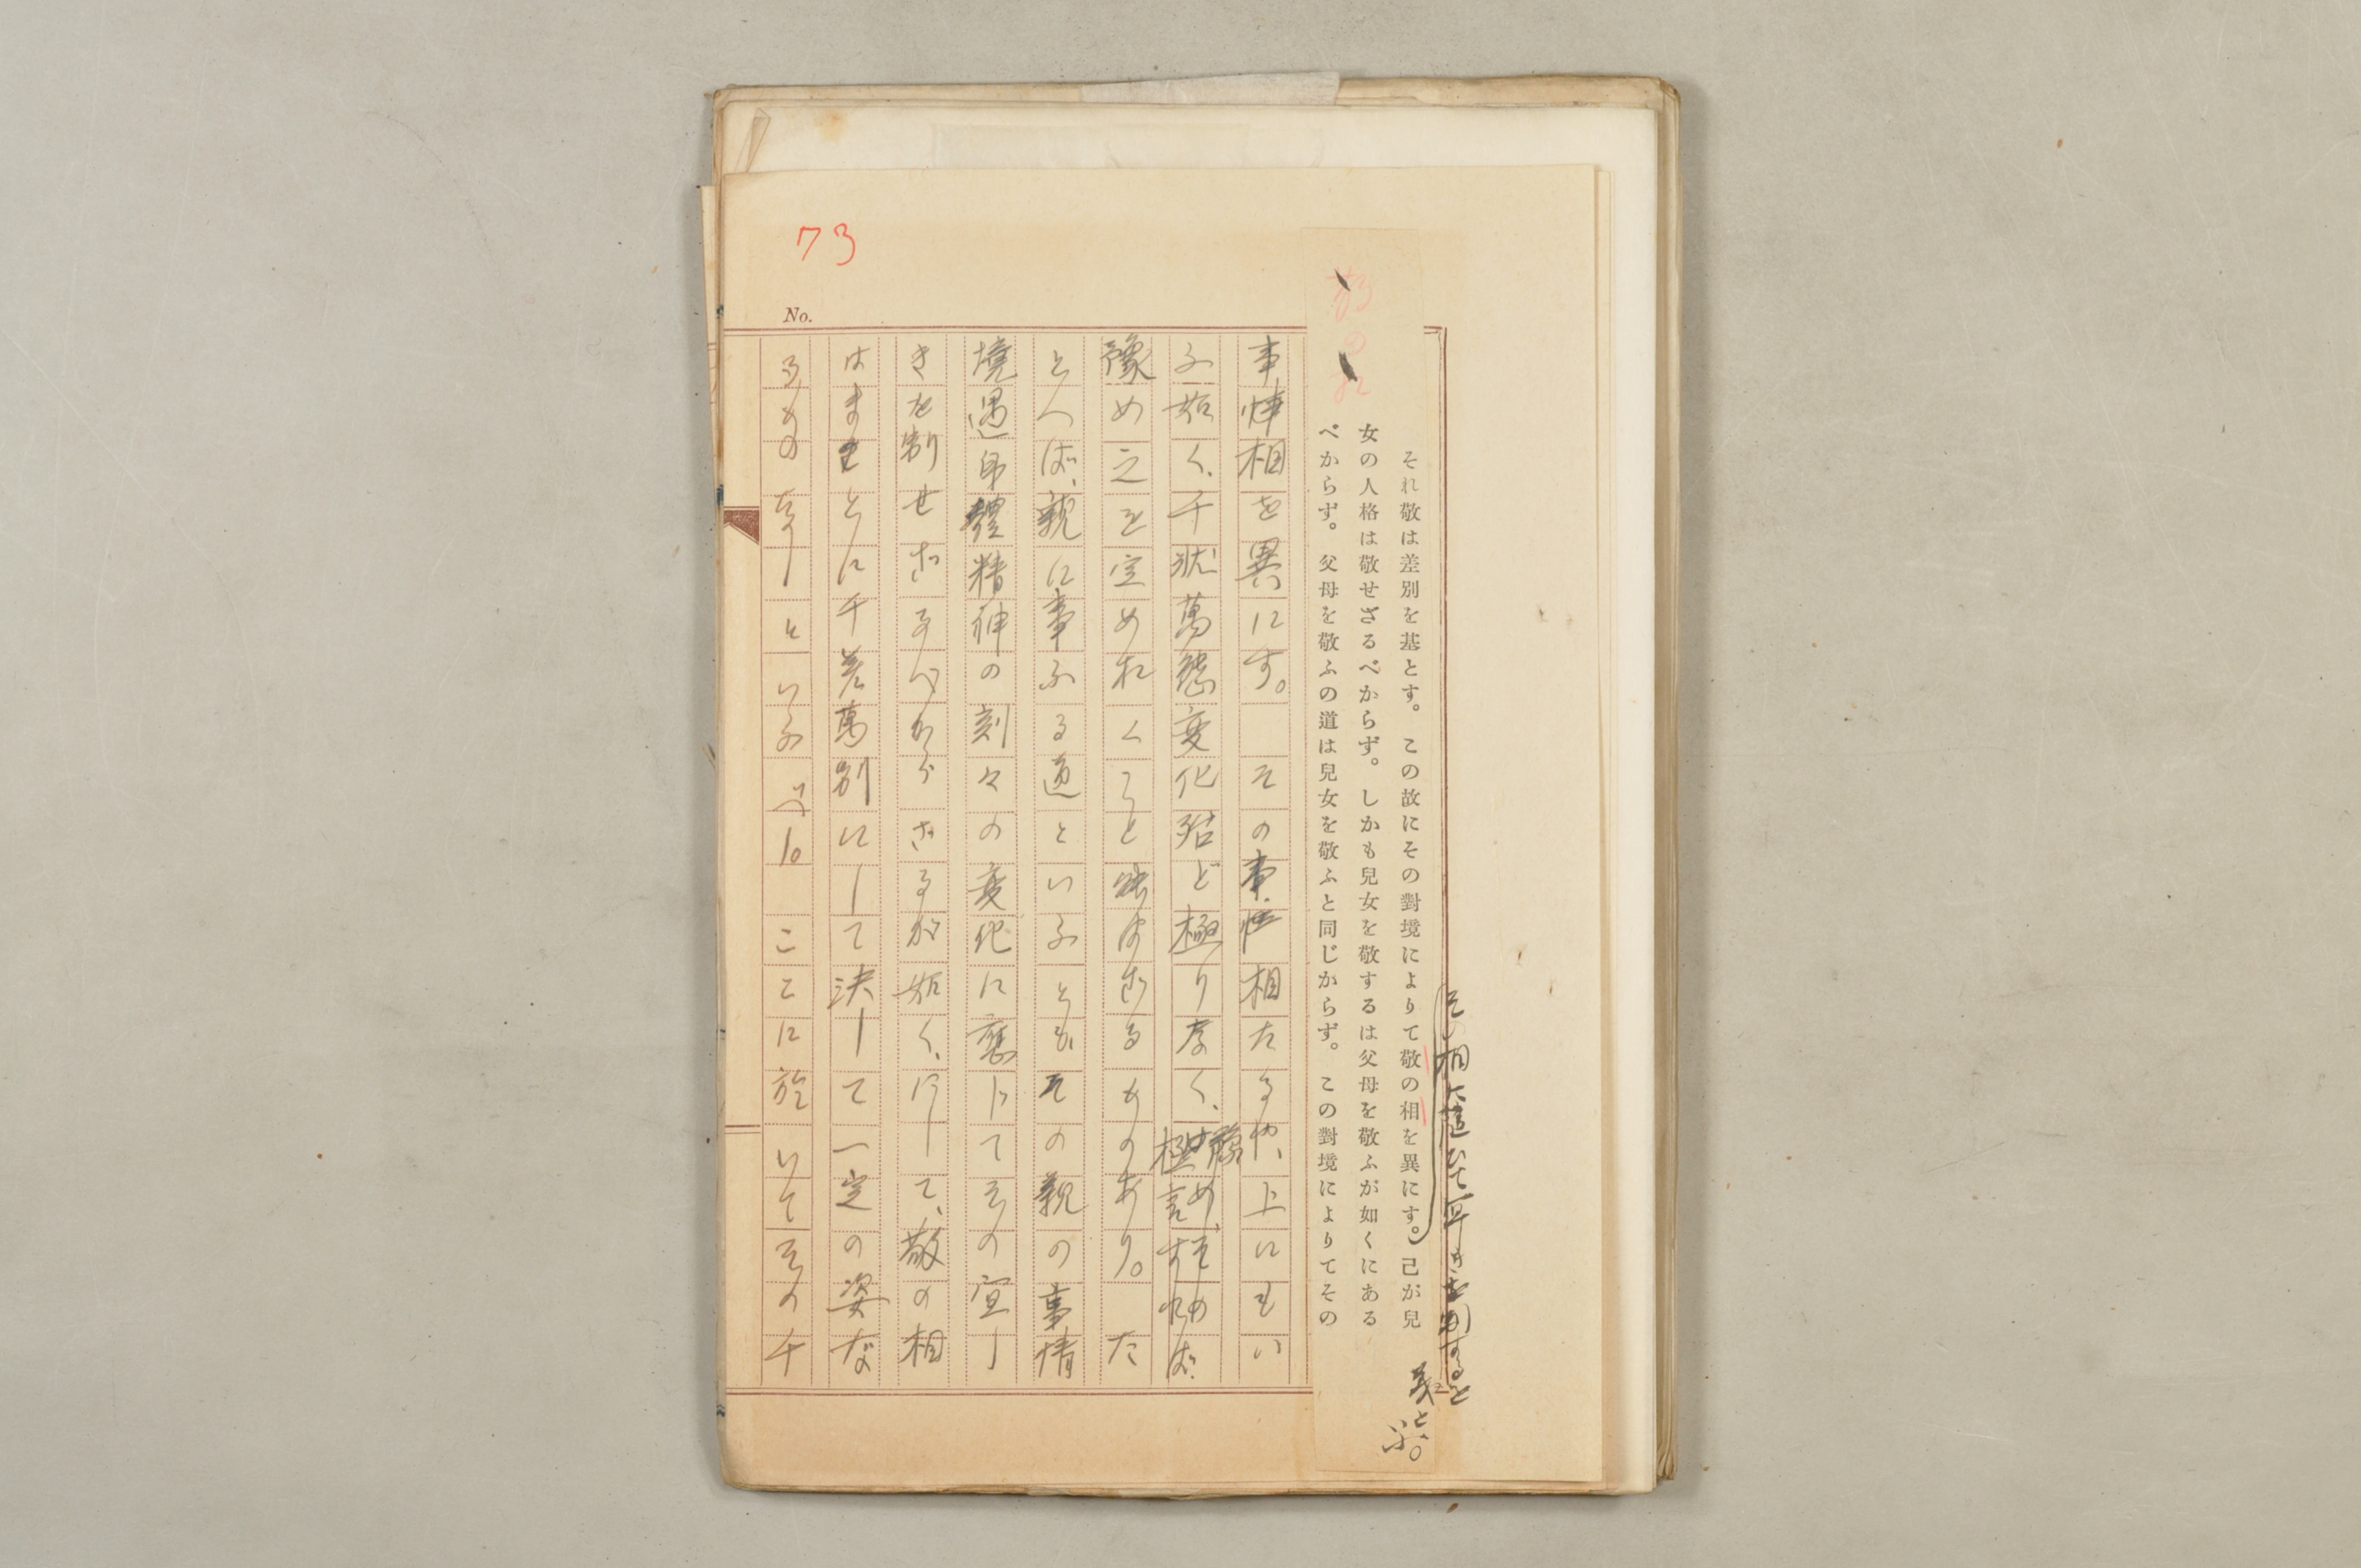 73
No.
それ敬は差別を基とす。この故にその對境によりて敬の相を異にす。己が兒
女の人格は敬せざるべからず。しかも兒女を敬するは父母を敬ふが如くにある
べからず。父母を敬ふの道は兒女を敬ふと同じからず。この對境によりてその
事情相を異にす。その事情相たるや、上にもい
ふ如く、千状萬態変化殆ど極りなく、豫めその
極言すれば
豫め之を定めおくこと能はざるものあり。た
とへば、親に事ふる道といふともその親の事情
境遇身體精神の刻々の変化に應じてその宜し
きを制せざるべからざるが如く、にして、敬の相
はまことに千差萬別にして決して一定の姿な
るものなしといふべし。ここに於いてその千